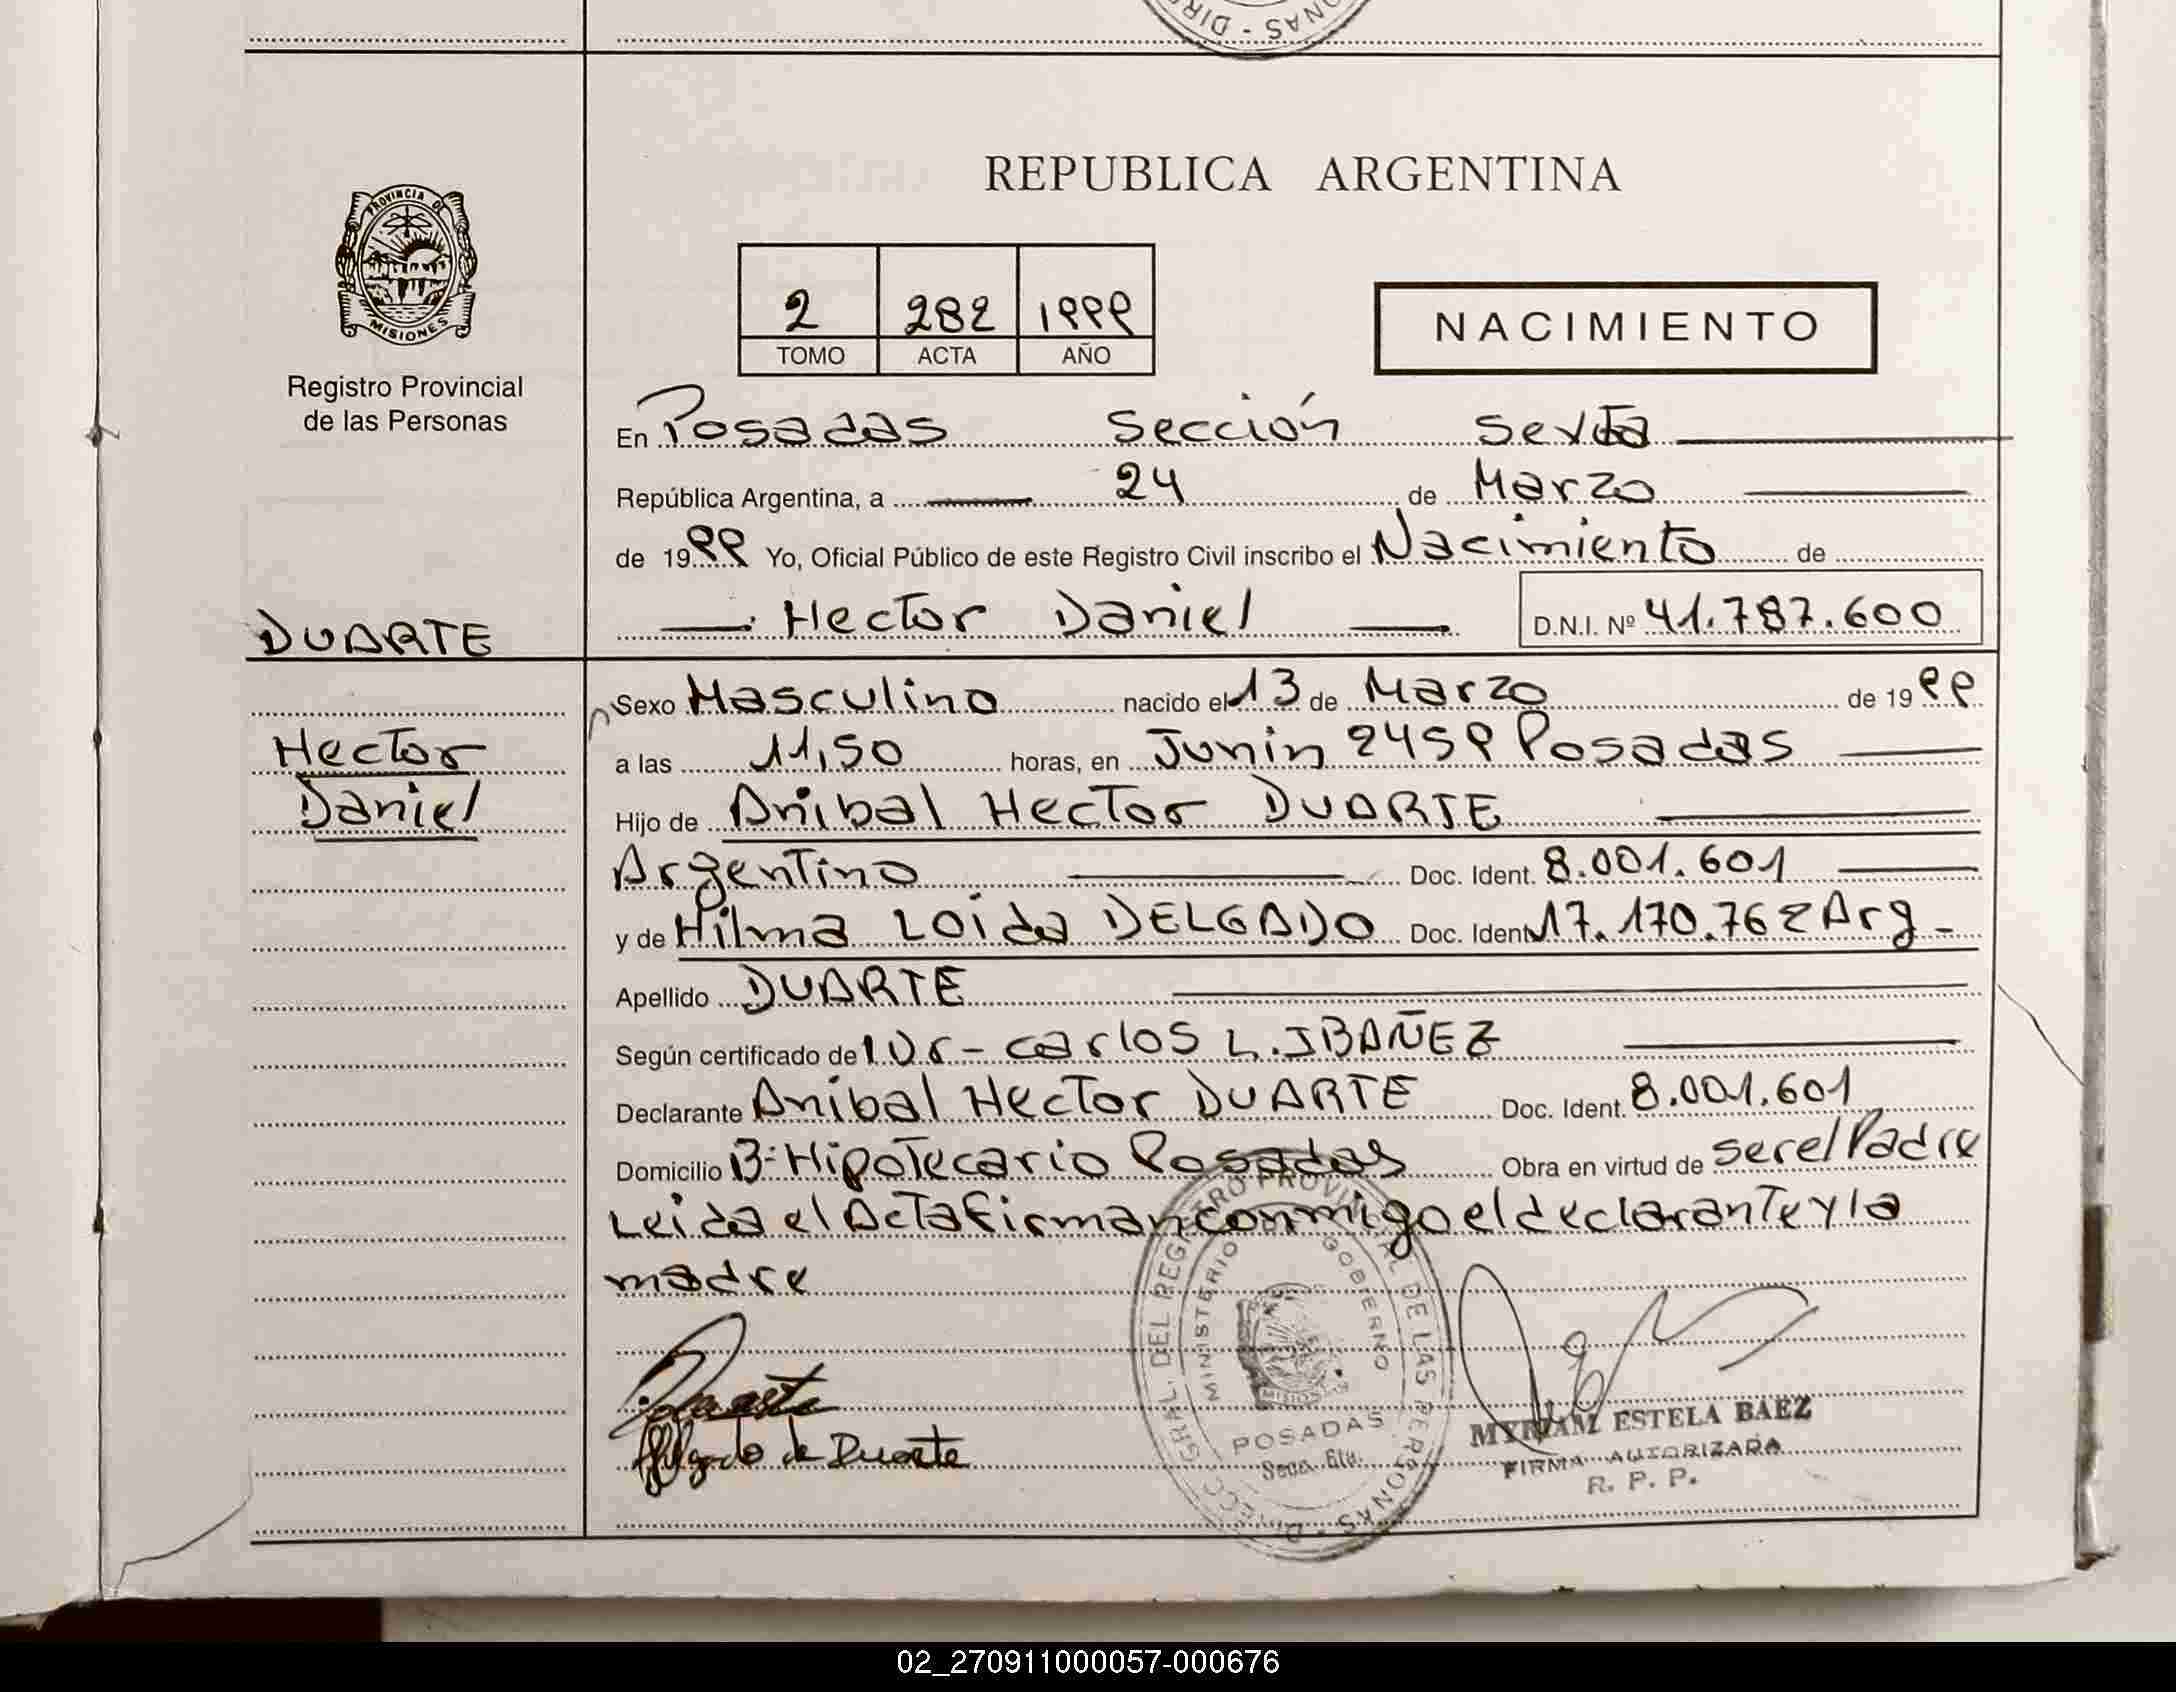 NAS - DIRE
REPUBLICA ARGENTINA
PROVINCIA DE
MISIONES
Registro Provincial
de las Personas
2 282 1999
TOMO ACTA AÑO
NACIMIENTO
En Posadas Sección Sexta
República Argentina, a 24 de Marzo
de 1999 Yo, Oficial Público de este Registro Civil inscribo el Nacimiento de
DUARTE
Hector Daniel D.N.I. Nº 41.787.600
Sexo Masculino nacido el 13 de Marzo de 1999
Hector
a las 11,50 horas, en Junin 2459 Posadas
Daniel
Hijo de Anibal Hector DUARTE
Argentino Doc. Ident. 8.001.601
y de Hilma Loida DELGADO Doc. Ident 17.170.762 Arg
Apellido DUARTE
Según certificado de Carlos L. IBAÑEZ
Declarante Anibal Hector DUARTE Doc. Ident. 8.001.601
Domicilio Bº Hipotecario Posadas Obra en virtud de ser el Padre
Leida el Acta firman conmigo el declarante y la
madre
DIRECC. GRAL. DEL REGISTRO PROVINCIAL DE LAS PERSONAS
MINISTERIO GOBIERNO
MISIONES
POSADAS
Secc. 6ta.
Duarte
Delgado de Duarte
MYRIAM ESTELA BAEZ
FIRMA AUTORIZADA
R. P. P.
02_270911000057-000676